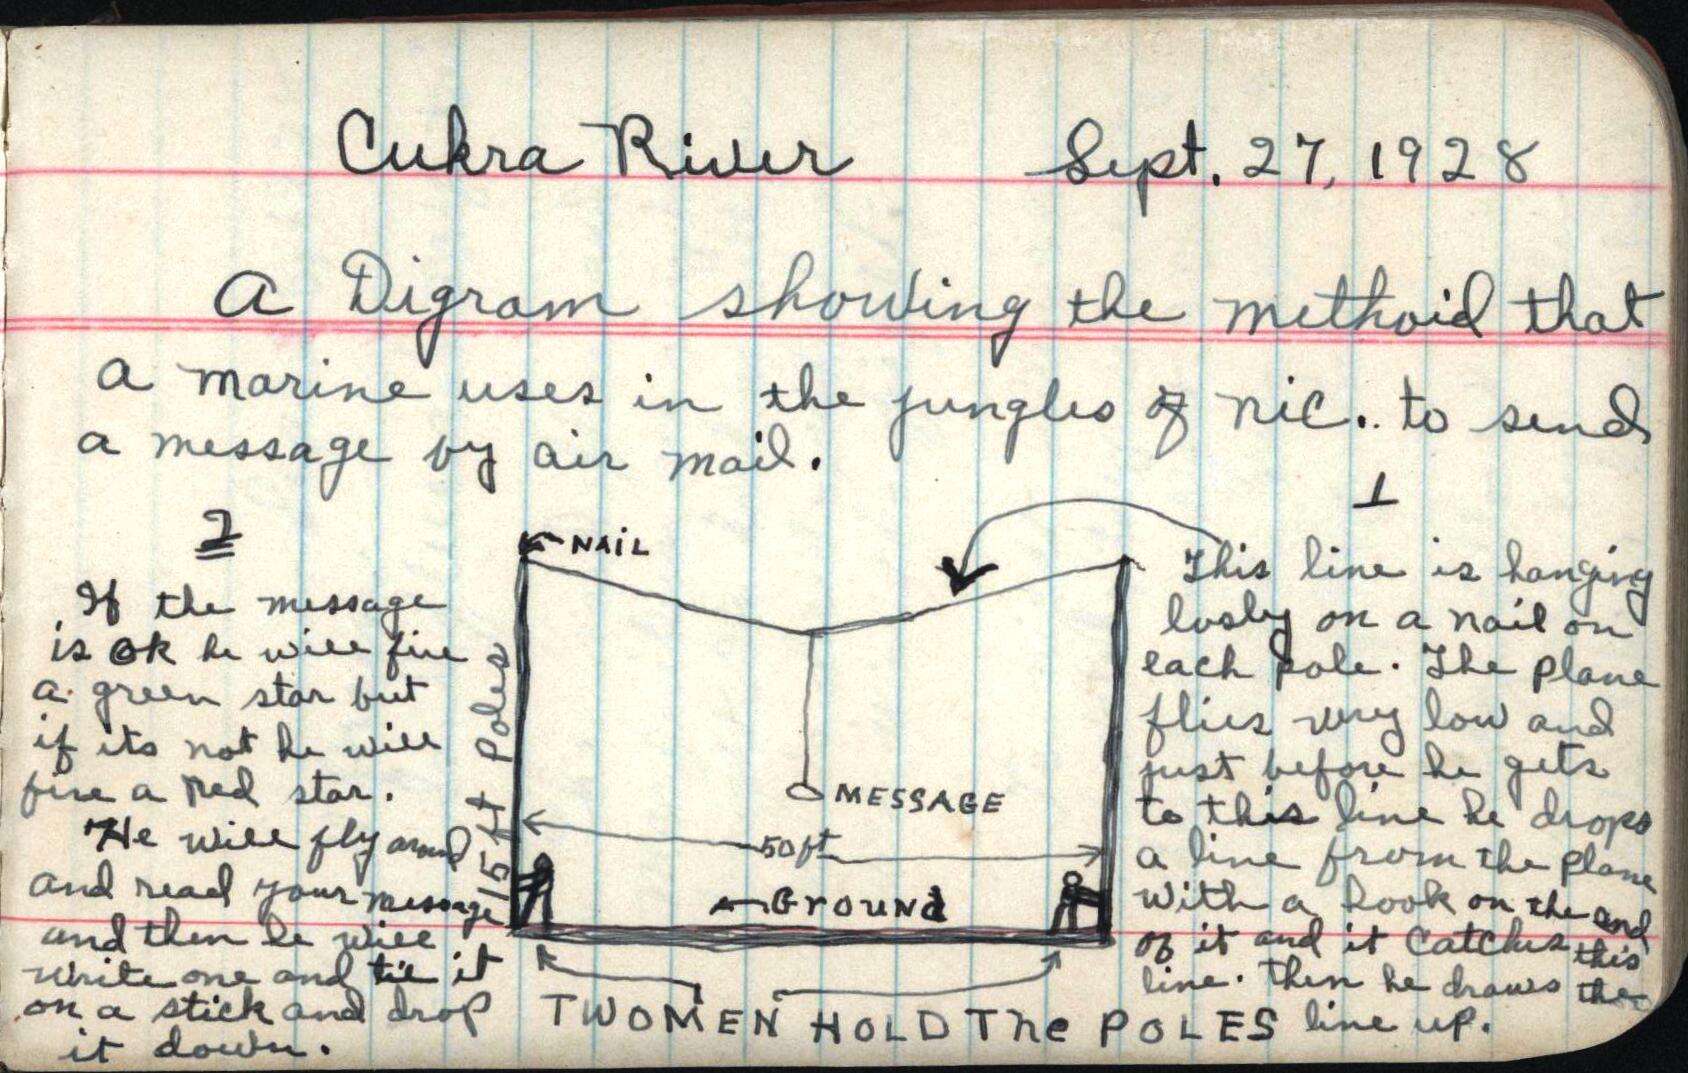 Cukra River Sept. 27, 1928
A Digram showing the methoid that
a marine uses in the jungles of Nic. to send
a message by air mail.
1
This line is hanging
losly on a nail on
each pole. The plane
flies very low and
just before he gets
to this line he drops
a line from the plane
with a hook on the end
of it and it catches this
line. Then he draws the
line up.
2
If the message
is ok he will fire
a green star but
if its not he will
fire a red star.
He will fly around
and read your message
and then he will
write one and tie it
on a stick and drop
it down.
NAIL
15 ft Poles
MESSAGE
50ft
GROUNd
TWO MEN HOLD The POLES